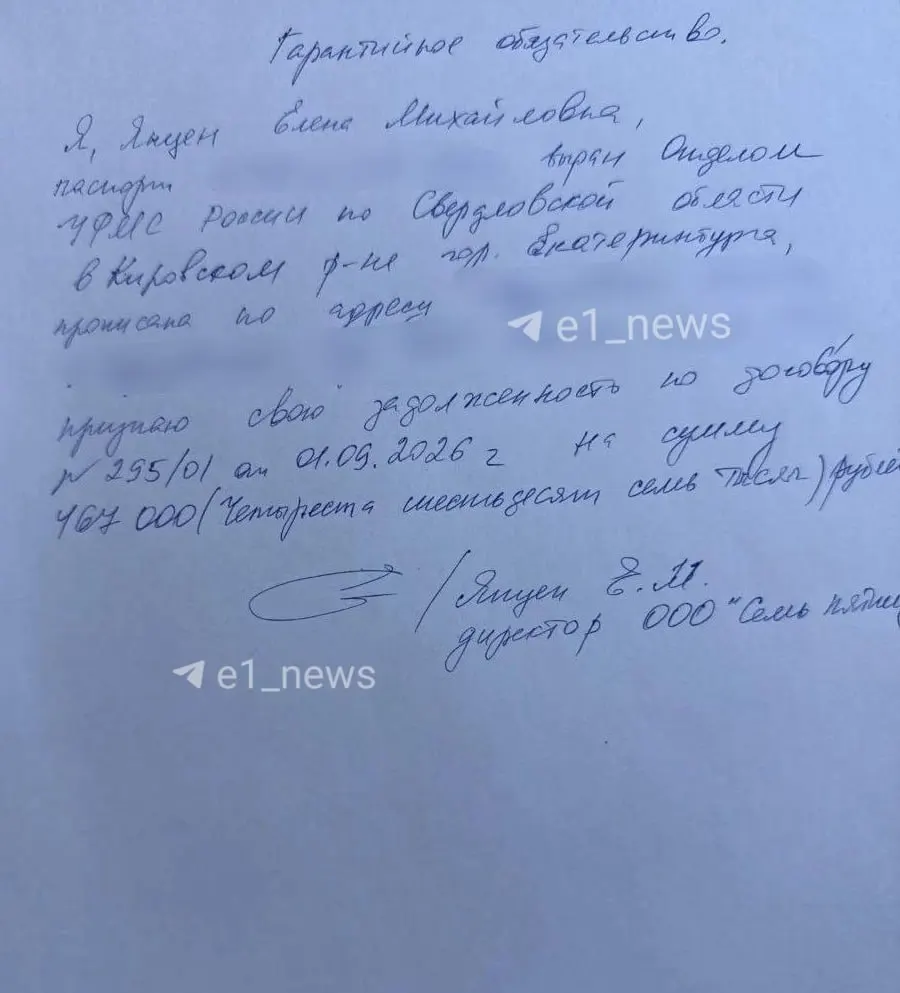 Гарантийное обязательство.
Я, Янцен Елена Михайловна,
паспорт выдан Отделом
УФМС России по Свердловской области
в Кировском р-не гор. Екатеринбурга,
прописана по адресу
e1_news
признаю свою задолженность по договору
№ 295/01 от 01.09.2026 г на сумму
467 000 (Четыреста шестьдесят семь тысяч) рублей
/ Янцен Е.М.
директор ООО "Семь пятниц
e1_news